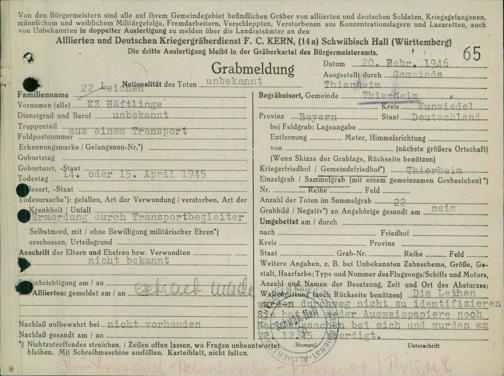 Von den Bürgermeistern sind alle auf ihrem Gemeindegebiet befindlichen Gräber von alliierten und deutschen Soldaten, Kriegsgefangenen,
männlichem und weiblichem Militärgefolge, Fremdarbeitern, Verschleppten, Verstorbenen aus Konzentrationslagern und Lazaretten, auch
von Unbekannten in doppelter Ausfertigung zu melden über die Landratsämter an den
Alliierten und Deutschen Kriegergräberdienst F. C. KERN, (14a) Schwäbisch Hall (Württemberg)
Die dritte Ausfertigung bleibt in der Gräberkartei des Bürgermeisteramts.
65
Grabmeldung
Datum 20. Febr. 1946
22 Leichen
Nationalität des Toten unbekannt
Ausgestellt durch Gemeinde
Thierheim
Familienname
Vornamen (alle) KZ Häftlinge
Dienstgrad und Beruf unbekannt
Truppenteil aus einem Transport
Feldpostnummer
Erkennungsmarke / Gefangenen-Nr.*)
Geburtstag
Geburtsort, -Staat
Todestag 14. oder 15. April 1945
-Staat
Todesursache*): gefallen, Art der Verwundung / verstorben, Art der
Krankheit / Unfall
Ermordung durch Transportbegleiter
Selbstmord, mit / ohne Bewilligung militärischer Ehren*)
erschossen, Urteilsgrund
Anschrift der Eltern und Ehefrau bzw. Verwandten
nicht bekannt
an / am
Alliierten: gemeldet am / an extract made
Nachlaß aufbewahrt bei nicht vorhanden
Nachlaß gesandt am / an
*) Nichtzutreffendes streichen. / Zeilen offen lassen, wo Fragen unbeantwortet
bleiben. Mit Schreibmaschine ausfüllen. Karteiblatt, nicht falten.
Begräbnisort, Gemeinde Thierheim
Kreis Wunsiedel
Provinz Bayern Staat Deutschland
bei Feldgrab: Lageangabe
Entfernung Meter, Himmelsrichtung
von (nächste größere Ortschaft)
(Wenn Skizze der Grablage, Rückseite benützen)
Kriegerfriedhof / Gemeindefriedhof*) Thierheim
Einzelgrab / Sammelgrab (mit einem gemeinsamen Grabzeichen)*)
Nr. Reihe Feld
Anzahl der Toten im Sammelgrab 22
Grabbild / Negativ*) an Angehörige gesandt am nein
Umgebettet am / durch
nach Friedhof
Kreis Provinz
Staat Grab-Nr. Reihe Feld
Weitere Angaben, z. B. bei Unbekannten Zahnschema, Größe, Ge-
stalt, Haarfarbe; Type und Nummer des Flugzeugs/Schiffs und Motors,
Anzahl und Namen der Besatzung, Zeit und Ort des Absturzes;
(auch Rückseite benützen) Die Leihen
wurden durchweg nicht zu identifizieren
Sie hatten weder Ausweispapiere noch
bei sich und wurden am
12.45
Stempel
Unterschrift